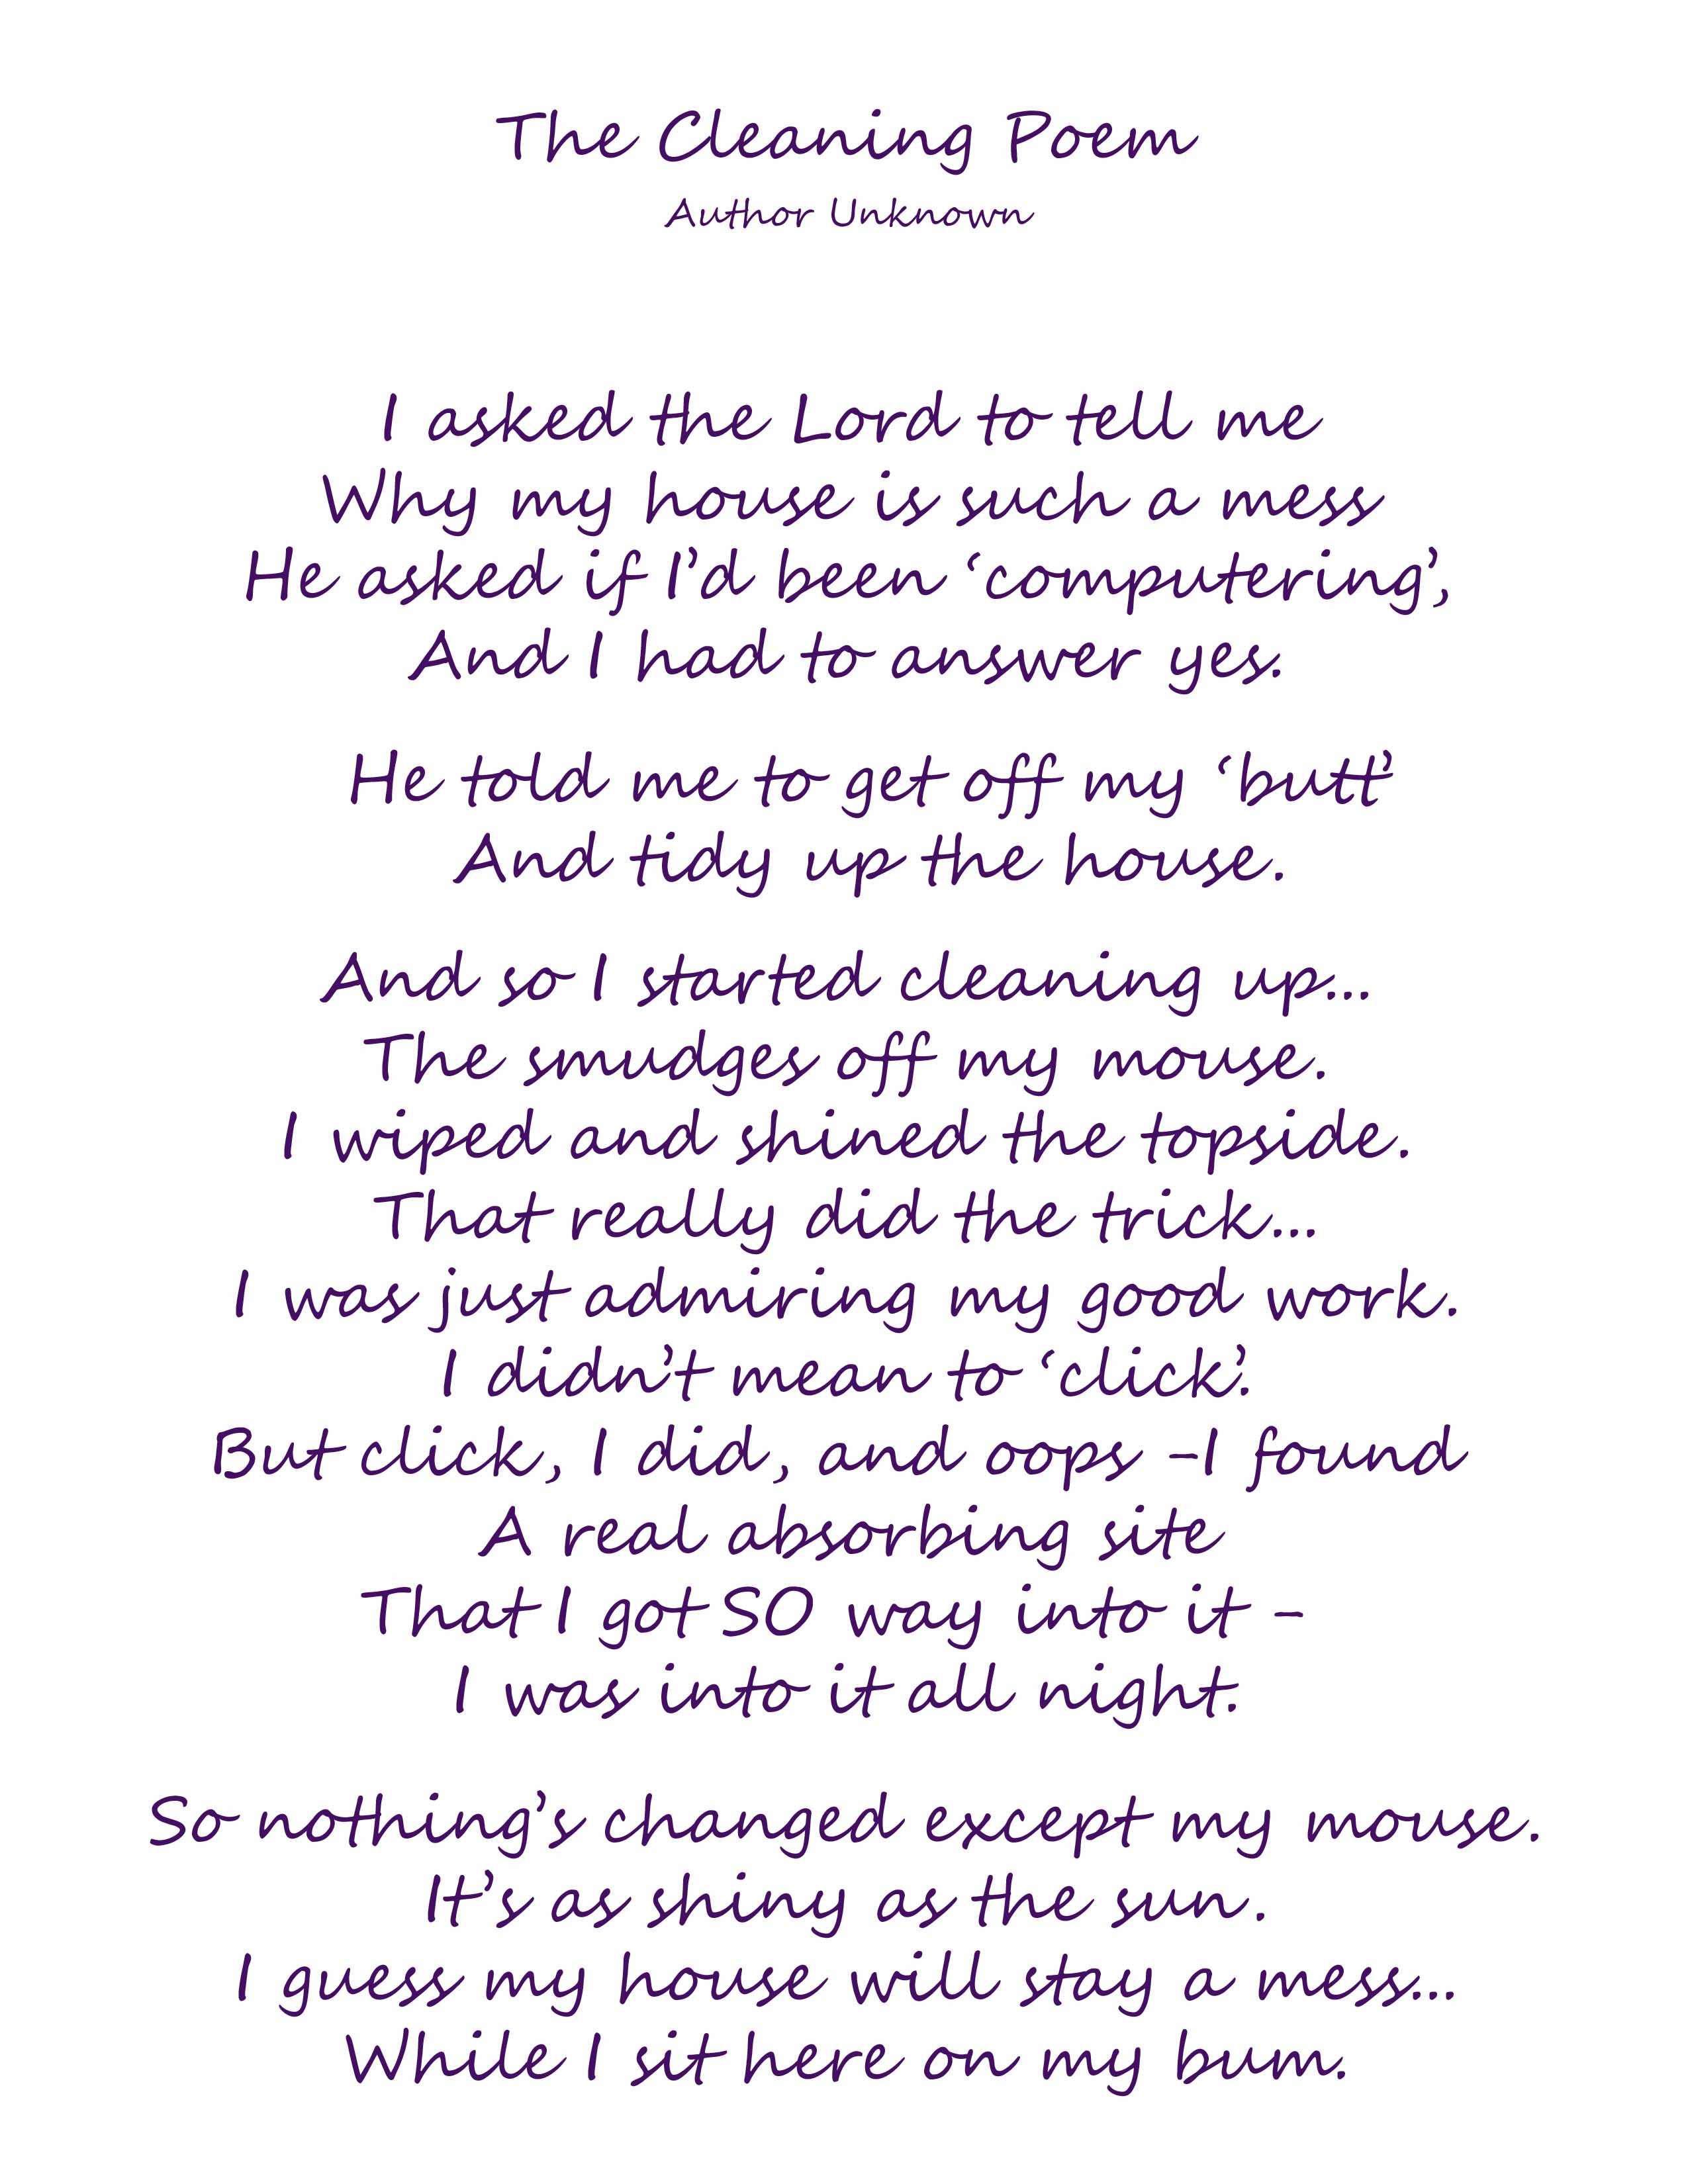 The Cleaning Poem
Author Unknown
I asked the Lord to tell me
Why my house is such a mess
He asked if I’d been ‘computering’,
And I had to answer yes.
He told me to get off my ‘butt’
And tidy up the house.
And so I started cleaning up...
The smudges off my mouse.
I wiped and shined the topside.
That really did the trick...
I was just admiring my good work.
I didn’t mean to ‘click’.
But click, I did, and oops -I found
A real absorbing site
That I got SO way into it -
I was into it all night.
So nothing’s changed except my mouse.
It’s as shiny as the sun.
I guess my house will stay a mess...
While I sit here on my bum.